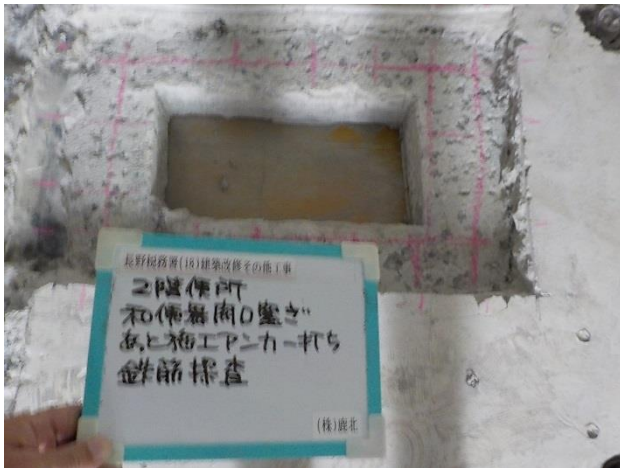 長野税務署(18)建築改修その他工事
2階便所
和便器開口塞ぎ
あと施工アンカー打ち
鉄筋探査
(株)鹿北